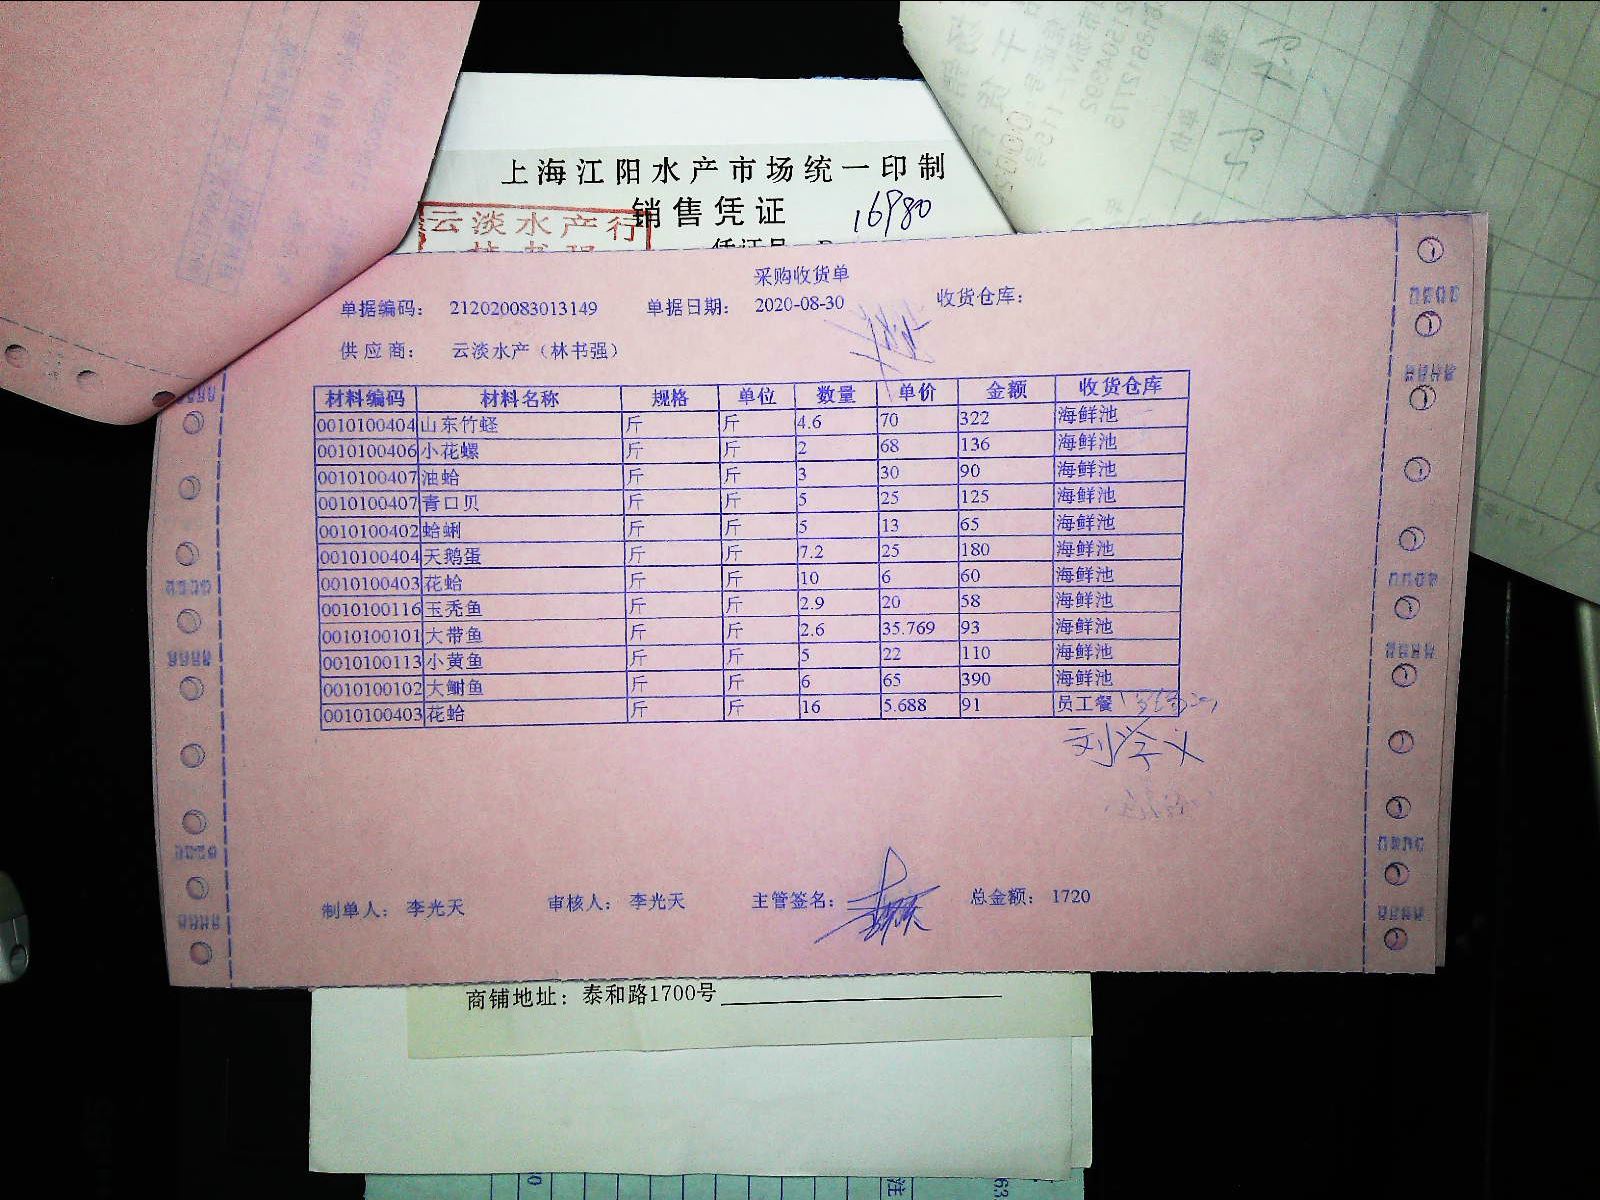 上海江阳水产市场统一印制
销售凭证
16980
云淡水产行
采购收货单
单据编码： 212020083013149 单据日期： 2020-08-30 收货仓库：
供应商： 云淡水产（林书强）
材料编码 材料名称 规格 单位 数量 单价 金额 收货仓库
0010100404 山东竹蛏 斤 斤 4.6 70 322 海鲜池
0010100406 小花螺 斤 斤 2 68 136 海鲜池
0010100407 油蛤 斤 斤 3 30 90 海鲜池
0010100407 青口贝 斤 斤 5 25 125 海鲜池
0010100402 蛤蜊 斤 斤 5 13 65 海鲜池
0010100404 天鹅蛋 斤 斤 7.2 25 180 海鲜池
0010100403 花蛤 斤 斤 10 6 60 海鲜池
0010100116 玉秃鱼 斤 斤 2.9 20 58 海鲜池
0010100101 大带鱼 斤 斤 2.6 35.769 93 海鲜池
0010100113 小黄鱼 斤 斤 5 22 110 海鲜池
0010100102 大鲥鱼 斤 斤 6 65 390 海鲜池
0010100403 花蛤 斤 斤 16 5.688 91 员工餐
制单人： 李光天 审核人： 李光天 主管签名： 总金额： 1720
商铺地址：泰和路1700号